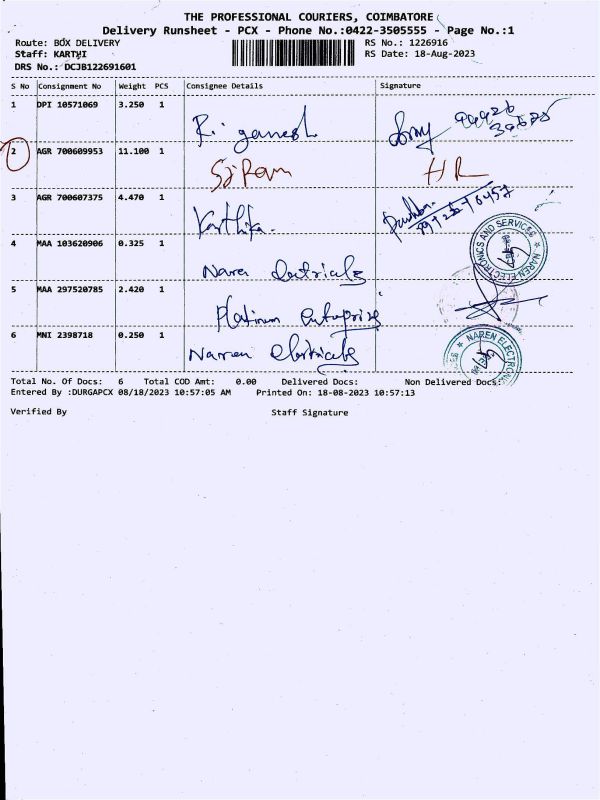 THE PROFESSIONAL COURIERS, COIMBATORE
Delivery Runsheet - PCX - Phone No.:0422-3505555 - Page No.:1
Route: BOX DELIVERY RS No.: 1226916
Staff: KARTHI RS Date: 18-Aug-2023
DRS No.: DCJB122691601
S No Consignment No Weight PCS Consignee Details Signature
1 DPI 10571069 3.250 1 R. ganesh
2 AGR 700609953 11.100 1 HR
3 AGR 700607375 4.470 1 Karthika.
4 MAA 103620906 0.325 1 Naren electricals NAREN ELECTRONICS AND SERVICES
5 MAA 297520785 2.420 1 Platinum enterprise
6 MNI 2398718 0.250 1 Narren electricals NAREN ELECTRONICS
Total No. Of Docs: 6 Total COD Amt: 0.00 Delivered Docs: Non Delivered Docs:
Entered By :DURGAPCX 08/18/2023 10:57:05 AM Printed On: 18-08-2023 10:57:13
Verified By Staff Signature